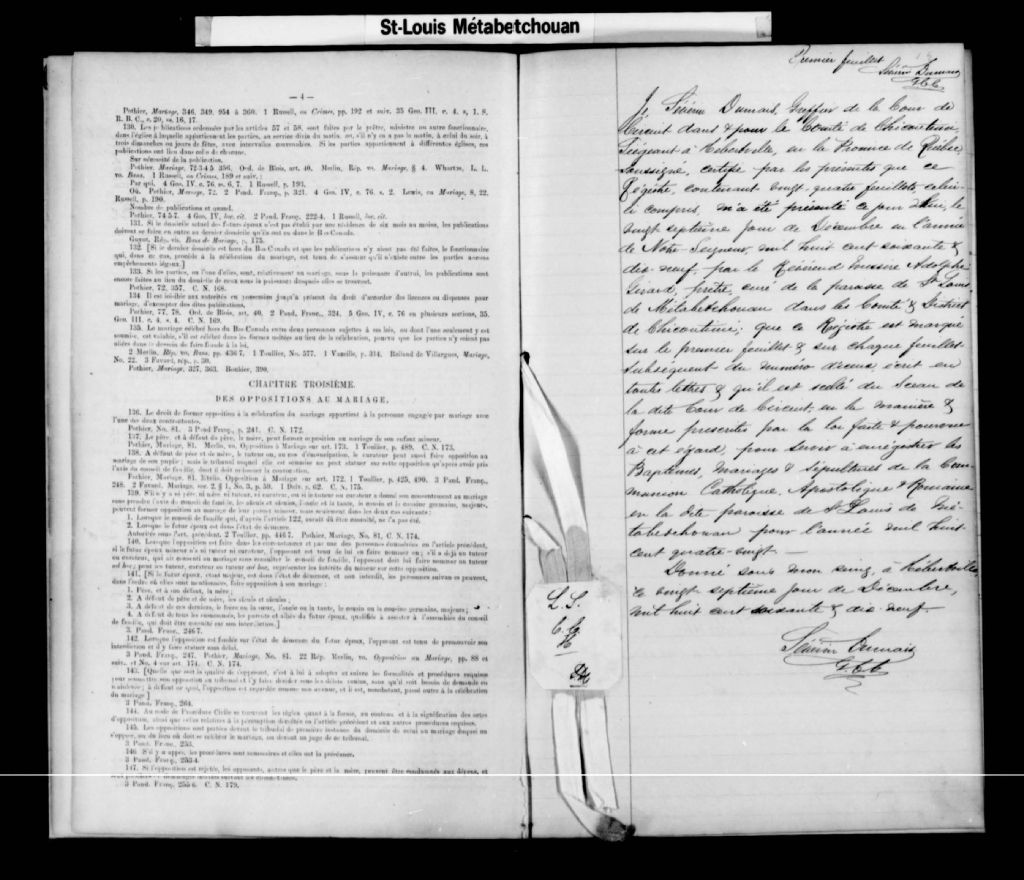 St-Louis Métabetchouan
— 4 —
Pothier, Mariage, 346, 349, 354 à 360. 1 Russell, on Crimes, pp. 192 et suiv. 35 Geo. III, c. 4, s. 1. S.
R. B. C., c. 20, ss. 16, 17.
130. Les publications ordonnées par les articles 57 et 58, sont faites par le prêtre, ministre ou autre fonctionnaire,
dans l'église à laquelle appartiennent les parties, au service divin du matin, ou, s'il n'y en a pas le matin, à celui du soir, à
trois dimanches ou jours de fêtes, avec intervalles convenables. Si les parties appartiennent à différentes églises, ces
publications ont lieu dans celle de chacune.
Sur nécessité de la publication.
Pothier, Mariage, 72-3-4-5 356. Ord. de Blois, art. 40. Merlin, Rép. vo. Mariage, § 4. Wharton, L. L.
vo. Bans, 1 Russell, on Crimes, 189 et suiv. :
Par qui. 4 Geo. IV, c. 76, ss. 6, 7. 1 Russell, p. 193.
Où. Pothier, Mariage, 72. 2 Pand. Franç., p. 321. 4 Geo. IV, c. 76, s. 2. Lewis, on Mariage, 8, 22.
Russell, p. 190.
Nombre de publications et quand.
Pothier, 74-5-7. 4 Geo. IV, loc. cit. 2 Pand. Franç., 222-4. 1 Russell, loc. cit.
131. Si le domicile actuel des futurs époux n'est pas établi par une résidence de six mois au moins, les publications
doivent se faire en outre au dernier domicile qu'ils ont eu dans le Bas-Canada.
Guyot, Rép. vis. Bans de Mariage, p. 175.
132. [Si le dernier domicile est hors du Bas-Canada et que les publications n'y aient pas été faites, le fonctionnaire
qui, dans ce cas, procède à la célébration du mariage, est tenu de s'assurer qu'il n'existe entre les parties aucuns
empêchements légaux.]
133. Si les parties, ou l'une d'elles, sont, relativement au mariage, sous la puissance d'autrui, les publications sont
encore faites au lieu du domicile de ceux sous la puissance desquels elles se trouvent.
Pothier, 72, 357. C. N. 168.
134. Il est loisible aux autorités en possession jusqu'à présent du droit d'accorder des licences ou dispenses pour
mariage, d'exempter des dites publications.
Pothier, 77, 78. Ord. de Blois, art. 40. 2 Pand. Franç., 324. 5 Geo. IV, c. 76 en plusieurs sections. 35.
Geo. III, c. 4, s. 4. C. N. 169.
135. Le mariage célébré hors du Bas-Canada entre deux personnes sujettes à ses lois, ou dont l'une seulement y est
soumise, est valable, s'il est célébré dans les formes usitées au lieu de la célébration, pourvu que les parties n'y soient pas
allées dans le dessein de faire fraude à la loi.
2 Merlin, Rép. vo. Bans, pp. 436-7. 1 Toullier, No. 577. 1 Vazeille, p. 314. Rolland de Villargues, Mariage,
No. 22. 3 Favard, rép., s. 30.
Pothier, Mariage, 327, 363. Bouhier, 390.
CHAPITRE TROISIÈME.
DES OPPOSITIONS AU MARIAGE.
136. Le droit de former opposition à la célébration du mariage appartient à la personne engagée par mariage avec
l'une des deux contractantes.
Pothier, No. 81. 3 Pand Franç., p. 241. C. N. 172.
137. Le père, et à défaut du père, la mère, peut former opposition au mariage de son enfant mineur.
Pothier, Mariage, 81. Merlin, vo. Opposition à Mariage sur art. 173. 1 Toullier, p. 489. C. N. 173.
138. A défaut de père et de mère, le tuteur ou, au cas d'émancipation, le curateur peut aussi faire opposition au
mariage de son pupille ; mais le tribunal auquel elle est soumise ne peut statuer sur cette opposition qu'après avoir pris
l'avis du conseil de famille, dont il doit ordonner la convocation.
139. S'il n'y a ni père, ni mère ni tuteur, ni curateur, ou si le tuteur ou curateur a donné son consentement au mariage
sans prendre l'avis du conseil de famille, les aïeuls et aïeules, l'oncle et la tante, le cousin et la cousine germains, majeurs,
peuvent former opposition au mariage de leur parent mineur, mais seulement dans les deux cas suivants :
1. Lorsque le conseil de famille qui, d'après l'article 122, aurait dû être consulté, ne l'a pas été.
2. Lorsque le futur époux est dans l'état de démence.
140. Lorsque opposition est faite dans les circonstances et par une des personnes énumérées en l'article précédent,
si le futur époux mineur n'a ni tuteur ni curateur, l'opposant est tenu de lui en faire nommer un ; s'il a déjà un tuteur
ou curateur, qui ait consenti au mariage sans consulter le conseil de famille, l'opposant doit lui faire nommer un tuteur
ad hoc ; pour les tuteur, curateur ou tuteur ad hoc, représenter les intérêts du mineur sur cette opposition.
141. [Si le futur époux, étant majeur, est dans l'état de démence, et non interdit, les personnes suivantes peuvent,
dans l'ordre où elles sont mentionnées, faire opposition à son mariage :
1. Père, et à son défaut, la mère ;
2. A défaut de père et de mère, les aïeuls et aïeules ;
3. A défaut de ces derniers, le frère ou la sœur, l'oncle ou la tante, le cousin ou la cousine germains, majeurs ;
4. A défaut de tous les susnommés, les parents et alliés du futur époux, qualifiés à assister à l'assemblée du conseil
de famille, qui doit être consulté sur son interdiction.]
3. Pand. Franç., 246-7.
142. Lorsque l'opposition est fondée sur l'état de démence du futur époux, l'opposant est tenu de promouvoir son
interdiction et d'y faire statuer sans délai.
143. [Quelle que soit la qualité de l'opposant, c'est à lui à adopter et suivre les formalités et procédures requises
pour soumettre son opposition au tribunal et l'y faire décider sous les délais voulus, sans qu'il soit besoin de demande en
mainlevée ; à défaut de quoi, l'opposition est regardée comme non avenue, et il est, nonobstant, passé outre à la célébration
du mariage.]
3 Pand. Franç., 264.
144. Au code de Procédure Civile se trouvent les règles quant à la forme, au contenu et à la signification des actes
d'opposition, ainsi que celles relatives à la péremption décrétée en l'article précédent et aux autres procédures requises.
145. Les oppositions sont portées devant le tribunal de première instance du domicile de celui au mariage duquel on
s'oppose, ou du lieu où doit se célébrer le mariage, ou devant un juge de ce tribunal.
3 Pand. Franç. 253.
146. S'il y a appel, les procédures sont sommaires et elles ont la préséance.
3 Pand. Franç., 253-4.
147. Si l'opposition est rejetée, les opposants, autres que le père et la mère, peuvent être condamnés aux dépens, et
3 Pand. Franç. 255-6. C. N. 179.
L. S.
Premier feuillet
Séverin Dumais
G.C.C.
Je Séverin Dumais, Greffier de la Cour de
Circuit dans & pour le Comté de Chicoutimi,
Siégeant à Hébertville, en la Province de Québec,
Soussigné, certifie par les présentes que ce
Régistre contenant vingt-quatre feuillets, celui-
ci compris, m'a été présenté ce jour d'hui, le
vingt septième jour de Décembre en l'année
de Notre Seigneur, mil huit cent soixante &
dix-neuf, par le Révérend Onésime Adolphe
Girard, prêtre, curé de la paroisse de St Louis
de Métabetchouan dans les Comté & District
de Chicoutimi; que ce Régistre est marqué
sur le premier feuillet & sur chaque feuillet
subséquent du numéro d'iceux, écrit en
toutes lettres & qu'il est scellé du Sceau de
la dite Cour de Circuit, en la manière &
forme prescrites par la loi faite & pourvue
à cet égard, pour servir à enrégistrer les
Baptêmes, Mariages & Sépultures de la Com-
munion Catholique, Apostolique & Romaine
en la dite paroisse de St Louis de Mé-
tabetchouan pour l'année mil huit
cent quatre-vingt —
Donné sous mon seing, à Hébertville
ce vingt septième jour de Décembre,
mil huit cent soixante & dix-neuf.
Séverin Dumais
G.C.C.